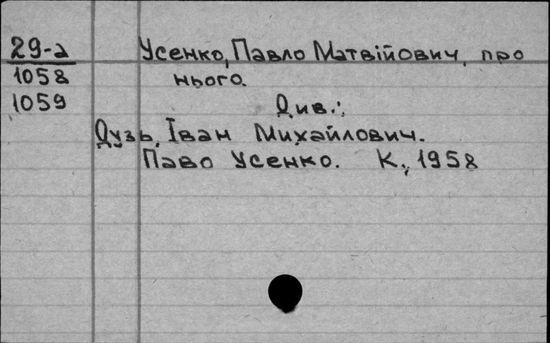 29-а Усенко, Павло Матвійович, про
1058 нього.
1059 Див.:
Дузь, Іван Михайлович.
Паво Усенко. К., 1958